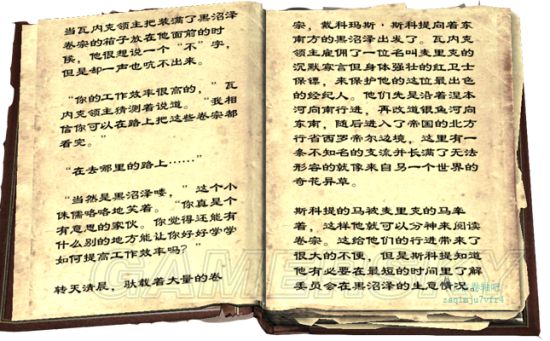 当瓦内克领主把装满了黑沼泽
卷宗的箱子放在他面前的时
候，他很想说一个“不”字，
但是却一声也吭不出来。
“你的工作效率很高的，”瓦
内克领主猜测着说道。“我相
信你可以在路上把这些卷宗都
看完。”
“在去哪里的路上……”
“当然是黑沼泽喽，”这个小
侏儒咯咯地笑着。“你真是个
有意思的家伙。你觉得还能有
什么别的地方能让你好好学学
如何提高工作效率吗？”
转天清晨，驮载着大量的卷
宗，戴科玛斯·斯科提向着东
南方的黑沼泽出发了。瓦内克
领主雇佣了一位名叫麦里克的
沉默寡言但身体强壮的红卫士
保镖，来保护他的这位最出色
的经纪人。他们先是沿着涅本
河向南行进，再改道银鱼河向
东南，随后进入了帝国的北方
行省西罗帝尔边境，这里有一
条不知名的支流并长满了无法
形容的就像来自另一个世界的
奇花异草。
斯科提的马被麦里克的马牵
着，这样他就可以分神来阅读
卷宗。这给他们的行进带来了
很大的不便，但是斯科提知道
他有必要在最短的时间里了解
委员会在黑沼泽的生意情况
GAMERSKY
卷轴吧
zaqimju7vfr4